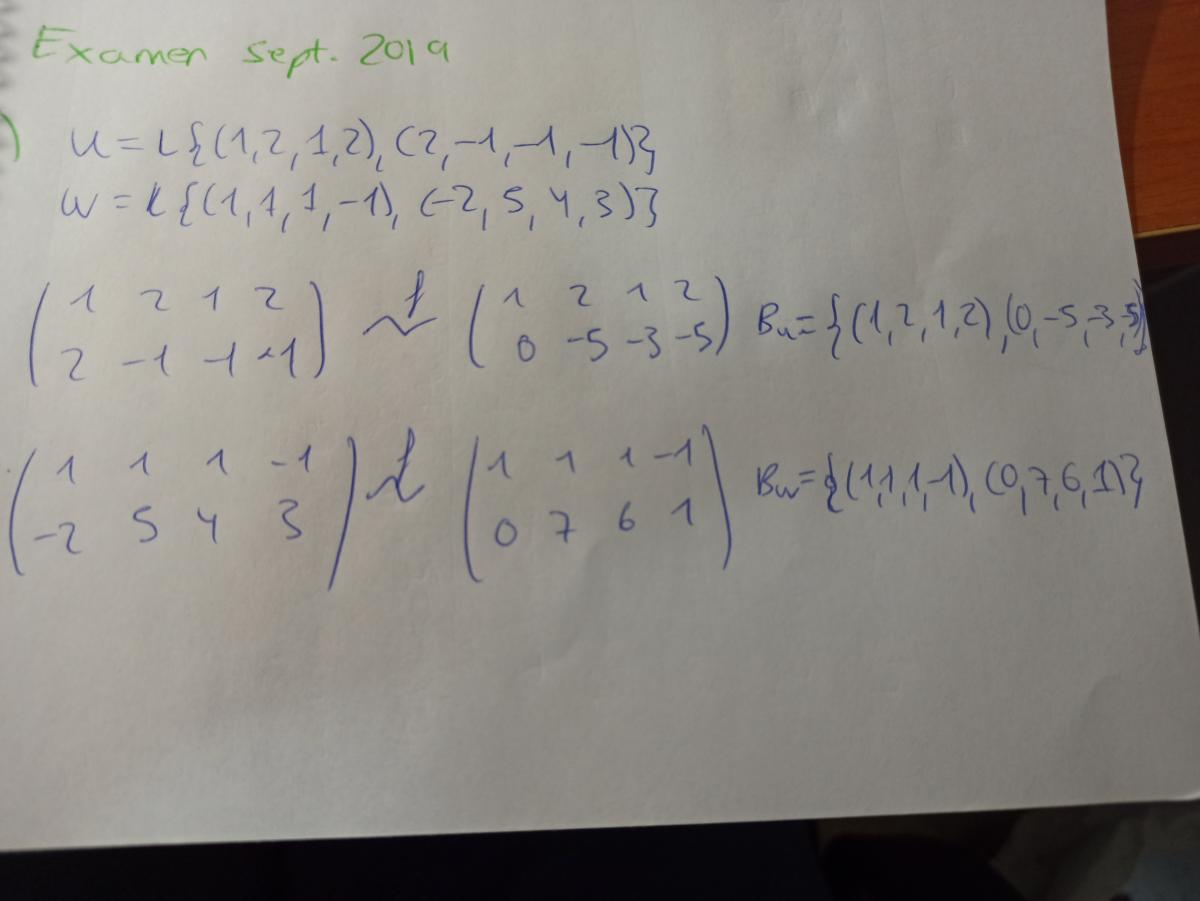 Examen sept. 2019
) U = L{(1,2,1,2), (2,-1,-1,-1)}
W = L{(1,1,1,-1), (-2,5,4,3)}
(1 2 1 2
2 -1 -1 -1) ~f (1 2 1 2
0 -5 -3 -5) Bu = {(1,2,1,2), (0,-5,-3,-5)}
(1 1 1 -1
-2 5 4 3) ~f (1 1 1 -1
0 7 6 1) Bw = {(1,1,1,-1), (0,7,6,1)}